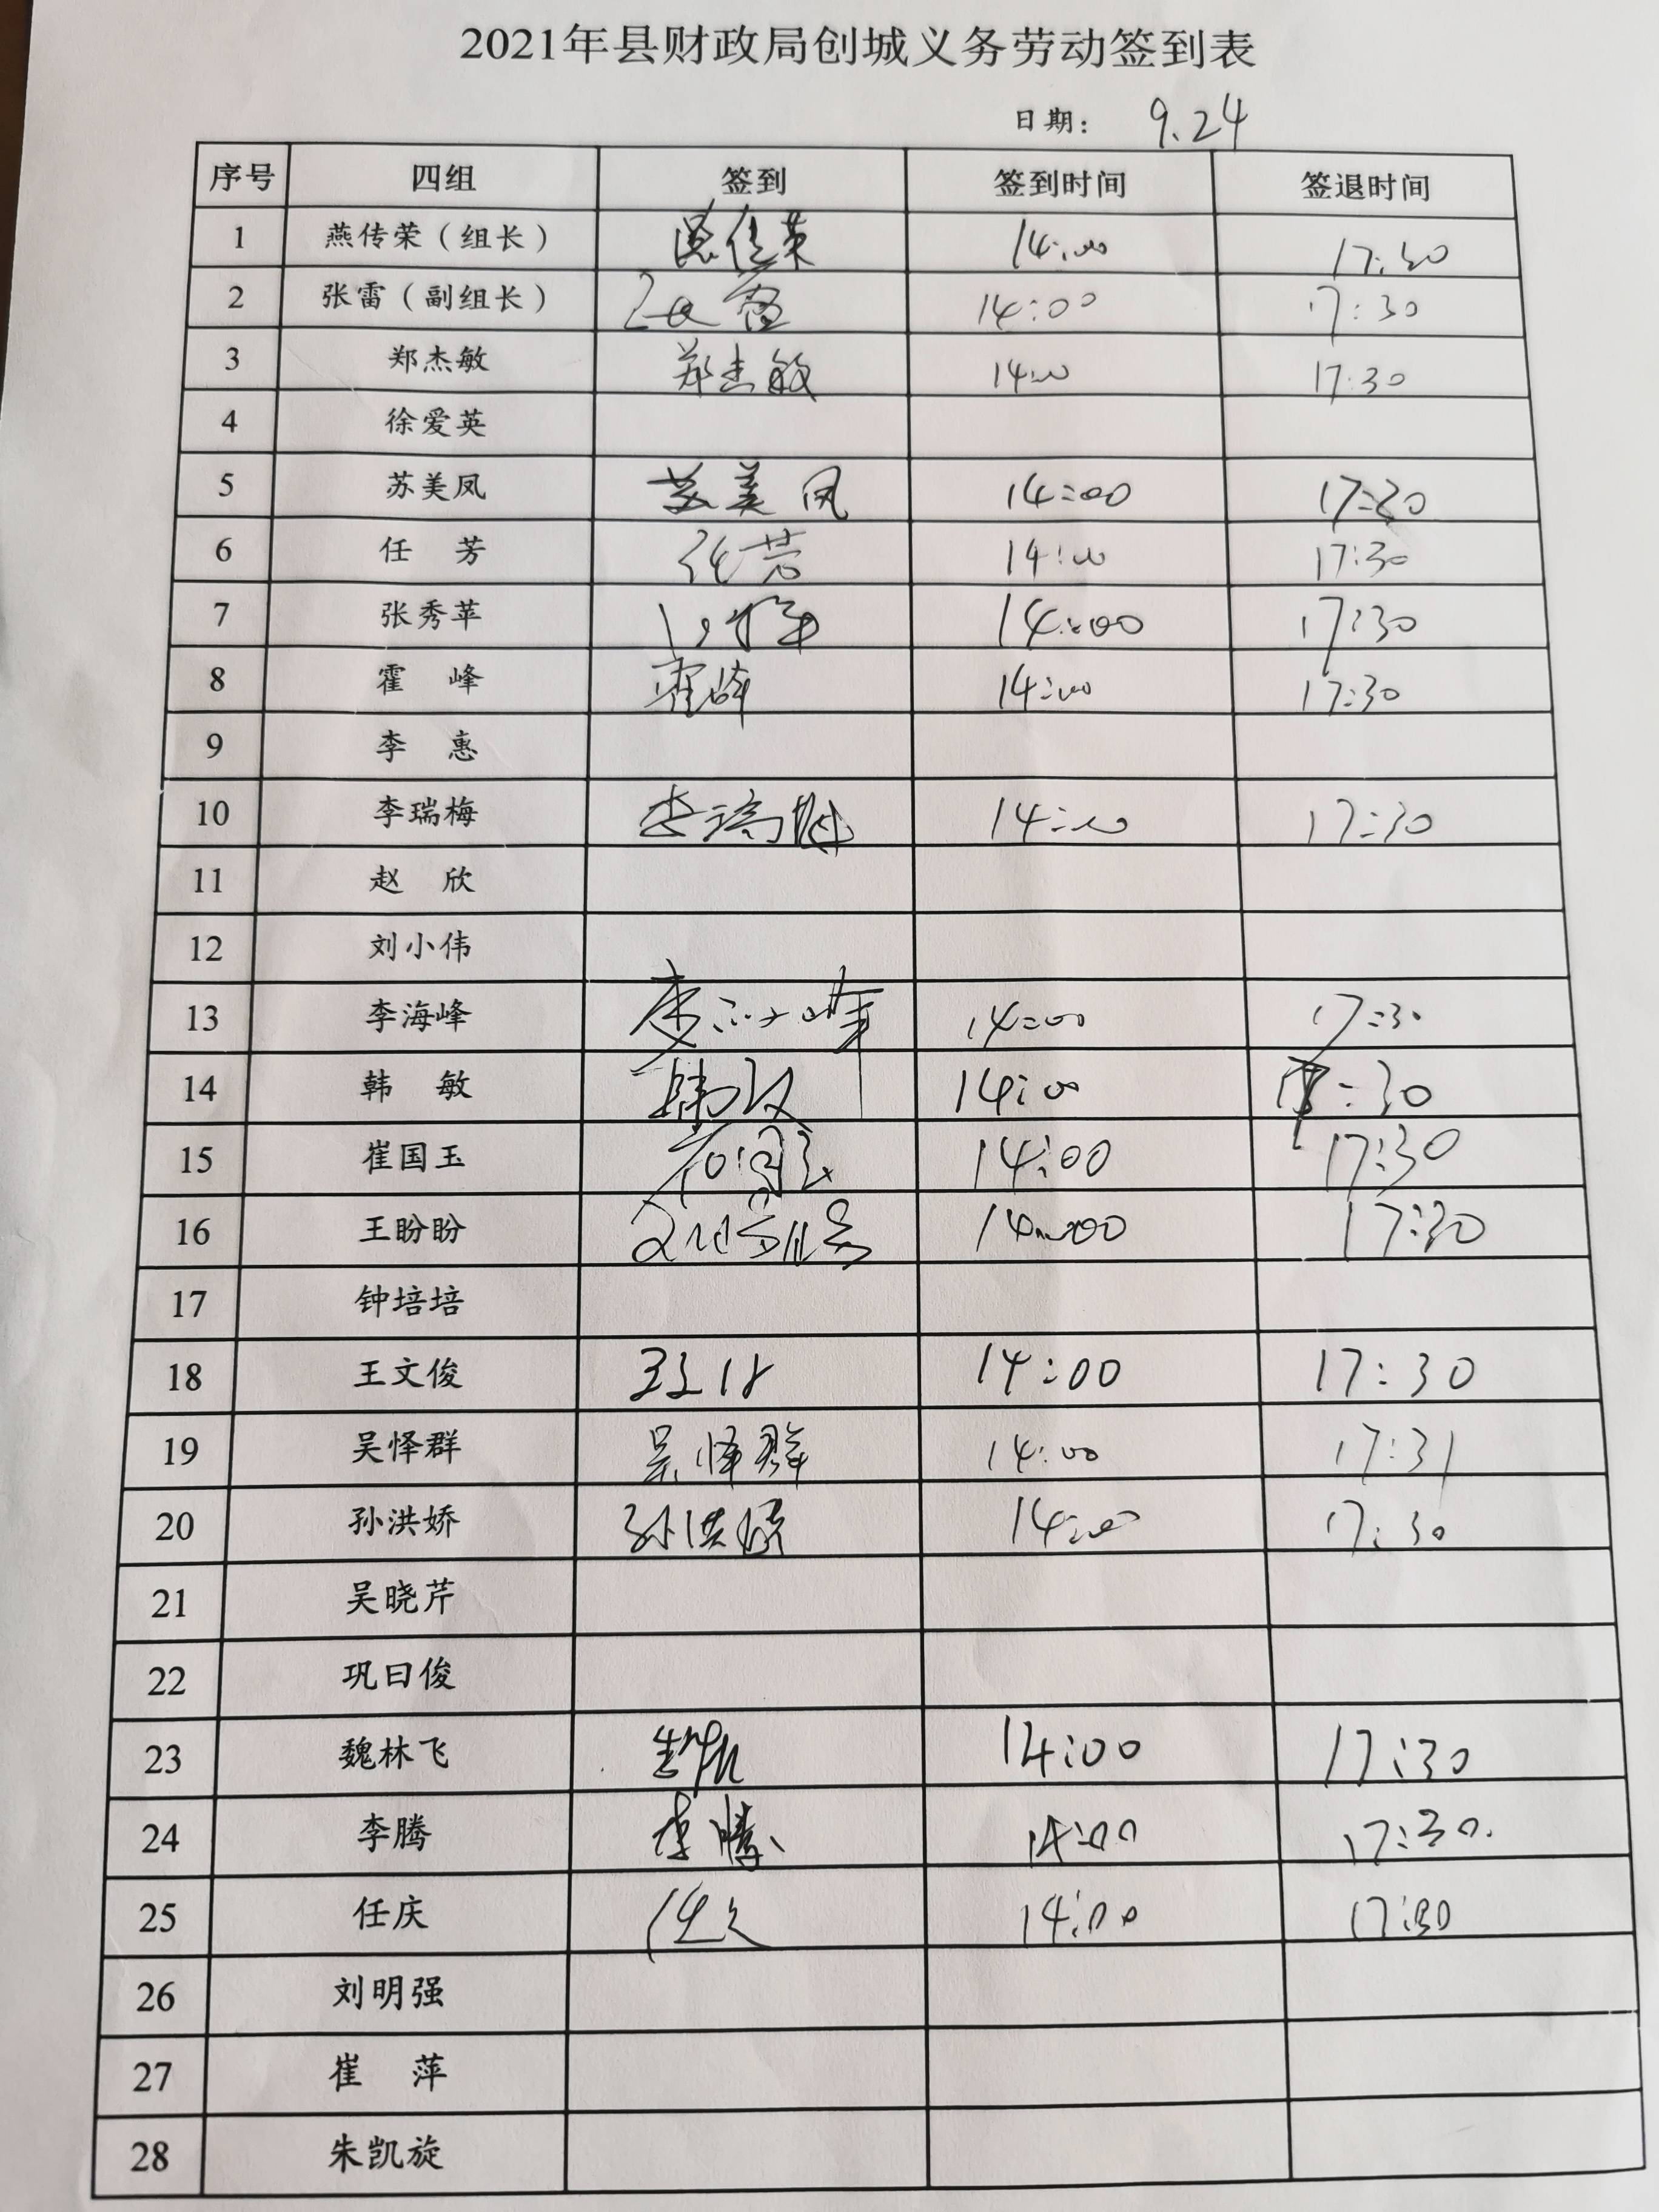 2021年县财政局创城义务劳动签到表
日期： 9.24
序号 四组 签到 签到时间 签退时间
1 燕传荣（组长） 燕传荣 14:00 17:30
2 张雷（副组长） 张雷 14:00 17:30
3 郑杰敏 郑杰敏 14:00 17:30
4 徐爱英
5 苏美凤 苏美凤 14:00 17:30
6 任 芳 任芳 14:00 17:30
7 张秀苹 14:00 17:30
8 霍 峰 霍峰 14:00 17:30
9 李 惠
10 李瑞梅 李瑞梅 14:00 17:30
11 赵 欣
12 刘小伟
13 李海峰 李海峰 14:00 17:30
14 韩 敏 韩敏 14:00 17:30
15 崔国玉 崔国玉 14:00 17:30
16 王盼盼 14:00 17:30
17 钟培培
18 王文俊 14:00 17:30
19 吴怿群 吴怿群 14:00 17:31
20 孙洪娇 孙洪娇 14:00 17:30
21 吴晓芹
22 巩曰俊
23 魏林飞 14:00 17:30
24 李腾 李腾 14:00 17:30
25 任庆 任庆 14:00 17:30
26 刘明强
27 崔 萍
28 朱凯旋